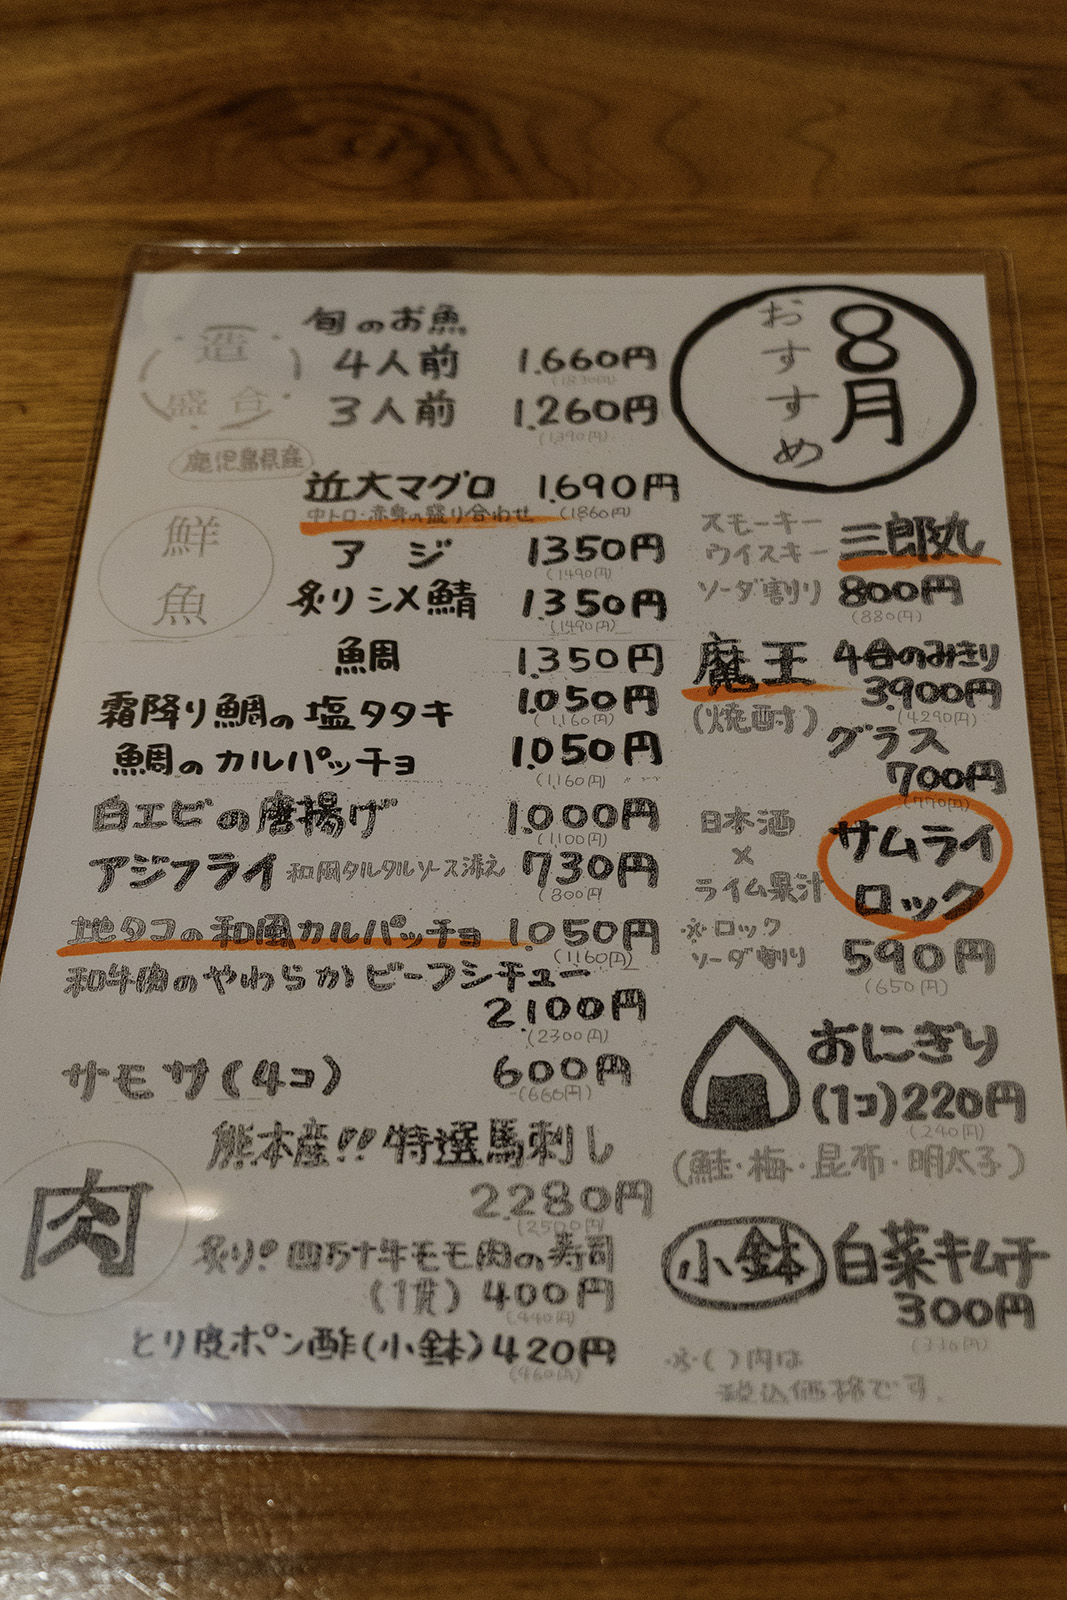 8月
おすすめ
造
盛合
旬のお魚
4人前 1.660円
(1830円)
3人前 1.260円
(1390円)
鹿児島県産
近大マグロ 1.690円
中トロ・赤身の盛り合わせ (1860円)
鮮魚
アジ 1350円
(1490円)
炙りシメ鯖 1.350円
(1490円)
魚周 1.350円
霜降り鯛の塩タタキ 1.050円
(1,160円)
鯛のカルパッチョ 1.050円
(1,160円)
白エビの唐揚げ 1.000円
(1,100円)
アジフライ 和風タルタルソース添え 730円
(800円)
地タコの和風カルパッチョ 1.050円
(1160円)
和牛肉のやわらかビーフシチュー
2.100円
(2300円)
サモサ(4コ) 600円
(660円)
肉
熊本産!!特選馬刺し
2.280円
(2500円)
炙り!四万十牛モモ肉の寿司
(1貫) 400円
(440円)
とり皮ポン酢(小鉢) 420円
(460円)
スモーキー
ウイスキー 三郎丸
ソーダ割り 800円
(880円)
魔王 4合のみきり
3.900円
(焼酎) (4290円)
グラス
700円
(770円)
日本酒
×
ライム果汁
サムライ
ロック
※ロック
ソーダ割り 590円
(650円)
おにぎり
(1コ) 220円
(240円)
(鮭・梅・昆布・明太子)
小鉢 白菜キムチ
300円
(330円)
※( )内は
税込価格です。